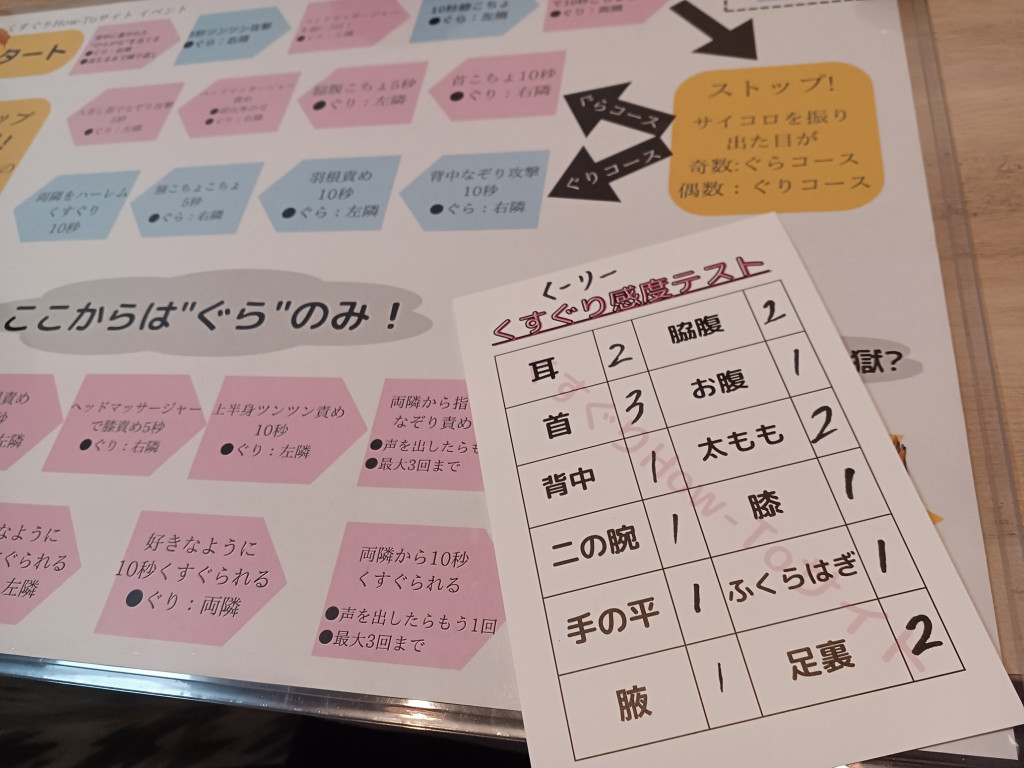 くすぐりHow-Toサイト イベント
タート
ツンツン攻撃
●ぐら：右隣
ヘッドマッサージャー
10秒
●ぐら：左隣
●ぐり：両隣
ップ
ストップ!
サイコロを振り
出た目が
奇数:ぐらコース
偶数：ぐりコース
ぐらコース
ぐりコース
首こちょ10秒
●ぐり：右隣
脇腹こちょ5秒
●ぐり：左隣
●ぐり：右隣
●ぐり：左隣
両隣をハーレム
くすぐり
10秒
こちょこちょ
5秒
●ぐら：右隣
羽根責め
10秒
●ぐら：左隣
背中なぞり攻撃
10秒
●ぐら：右隣
ここからは"ぐら"のみ！
獄?
責め
左隣
ヘッドマッサージャー
で膝責め5秒
●ぐり：右隣
上半身ツンツン責め
10秒
●ぐり：左隣
両隣から指
なぞり責め
●声を出したらも
●最大3回まで
なように
すぐられる
左隣
好きなように
10秒くすぐられる
●ぐり：両隣
両隣から10秒
くすぐられる
●声を出したらもう1回
●最大3回まで
くーりー
くすぐり感度テスト
耳 2 脇腹 2
首 3 お腹 1
背中 1 太もも 2
二の腕 1 膝 1
手の平 1 ふくらはぎ 1
腋 1 足裏 2
すぐりHow-Toサイト